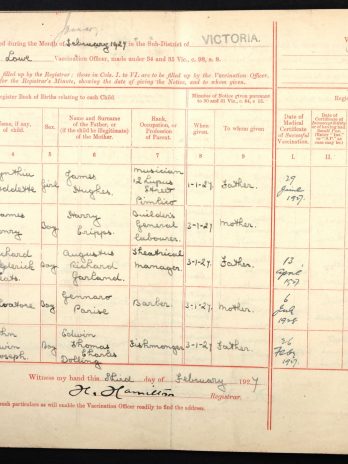 January
ed during the Month of February 1927 in the Sub-District of VICTORIA.
Lowe Vaccination Officer, made under 34 and 35 Vic. c. 98, s. 8.
filled up by the Registrar; those in Cols. I. to VI. are to be filled up by the Vaccination Officer,
for the Registrar's Minute, showing the date of giving the Notice, according to the directions there given.
Register Book of Births relating to each Child.
Minutes of Notice given pursuant
to 30 and 31 Vic.
Name, if any,
of child.
Sex.
Name and Surname
of the Father, or
(if the child be illegitimate)
of the Mother.
Rank,
Occupation, or
Profession
of Parent.
When
given.
To whom given.
Date of
Medical
Certificate
of Successful
Vaccination.
Date of
Certificate of
4 5 6 7 8 9 I. II.
Girl
James
Hughes.
Musician
12 Lupus
Street
Pimlico
1-1-27.
Father.
29
June
1927.
Boy
Harry
Cripps.
Builder's
General
labourer.
3-1-27.
Mother.
Boy
Augustus
Richard
Garland.
Theatrical
Manager.
3-1-27.
Father.
13
April
1927
Boy
Gennaro
Parise
Barber.
3-1-27.
Mother.
6
July
1928
Boy
Edwin
Thomas
Charles
Dolling
Fishmonger.
3-1-27.
Father.
26
Feby
1927.
Witness my hand this third day of February 1927
H. Hamilton
Registrar.
such particulars as will enable the Vaccination Officer readily to find the address.